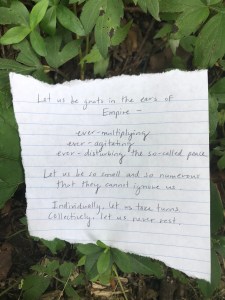 Let us be gnats in the ears of
Empire -
ever-multiplying
ever-agitating
ever-disturbing the so-called peace.
Let us be so small and so numerous
that they cannot ignore us.
Individually, let us take turns.
Collectively, let us never rest.